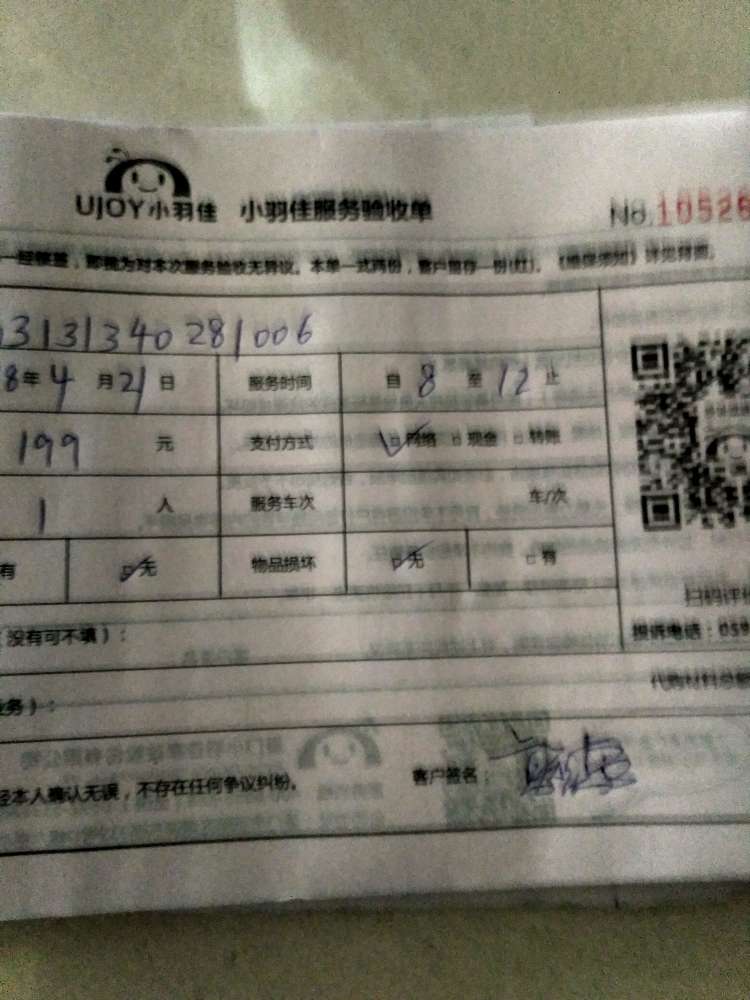 UJOY小羽佳 小羽佳服务验收单 No.10526
一经签, 即视为对本次服务验收无异议。本单一式两份, 客户留存一份(红)。《 》详见背面。
3131340281006
8年4月21日 服务时间 自8至12止
199元 支付方式 网络 现金 转账
1人 服务车次 车/次
有 无 物品损坏 无 有
扫码评价
(没有可不填):
投诉电话:059
业务):
代购材料总额
经本人确认无误,不存在任何争议纠纷。 客户签名: